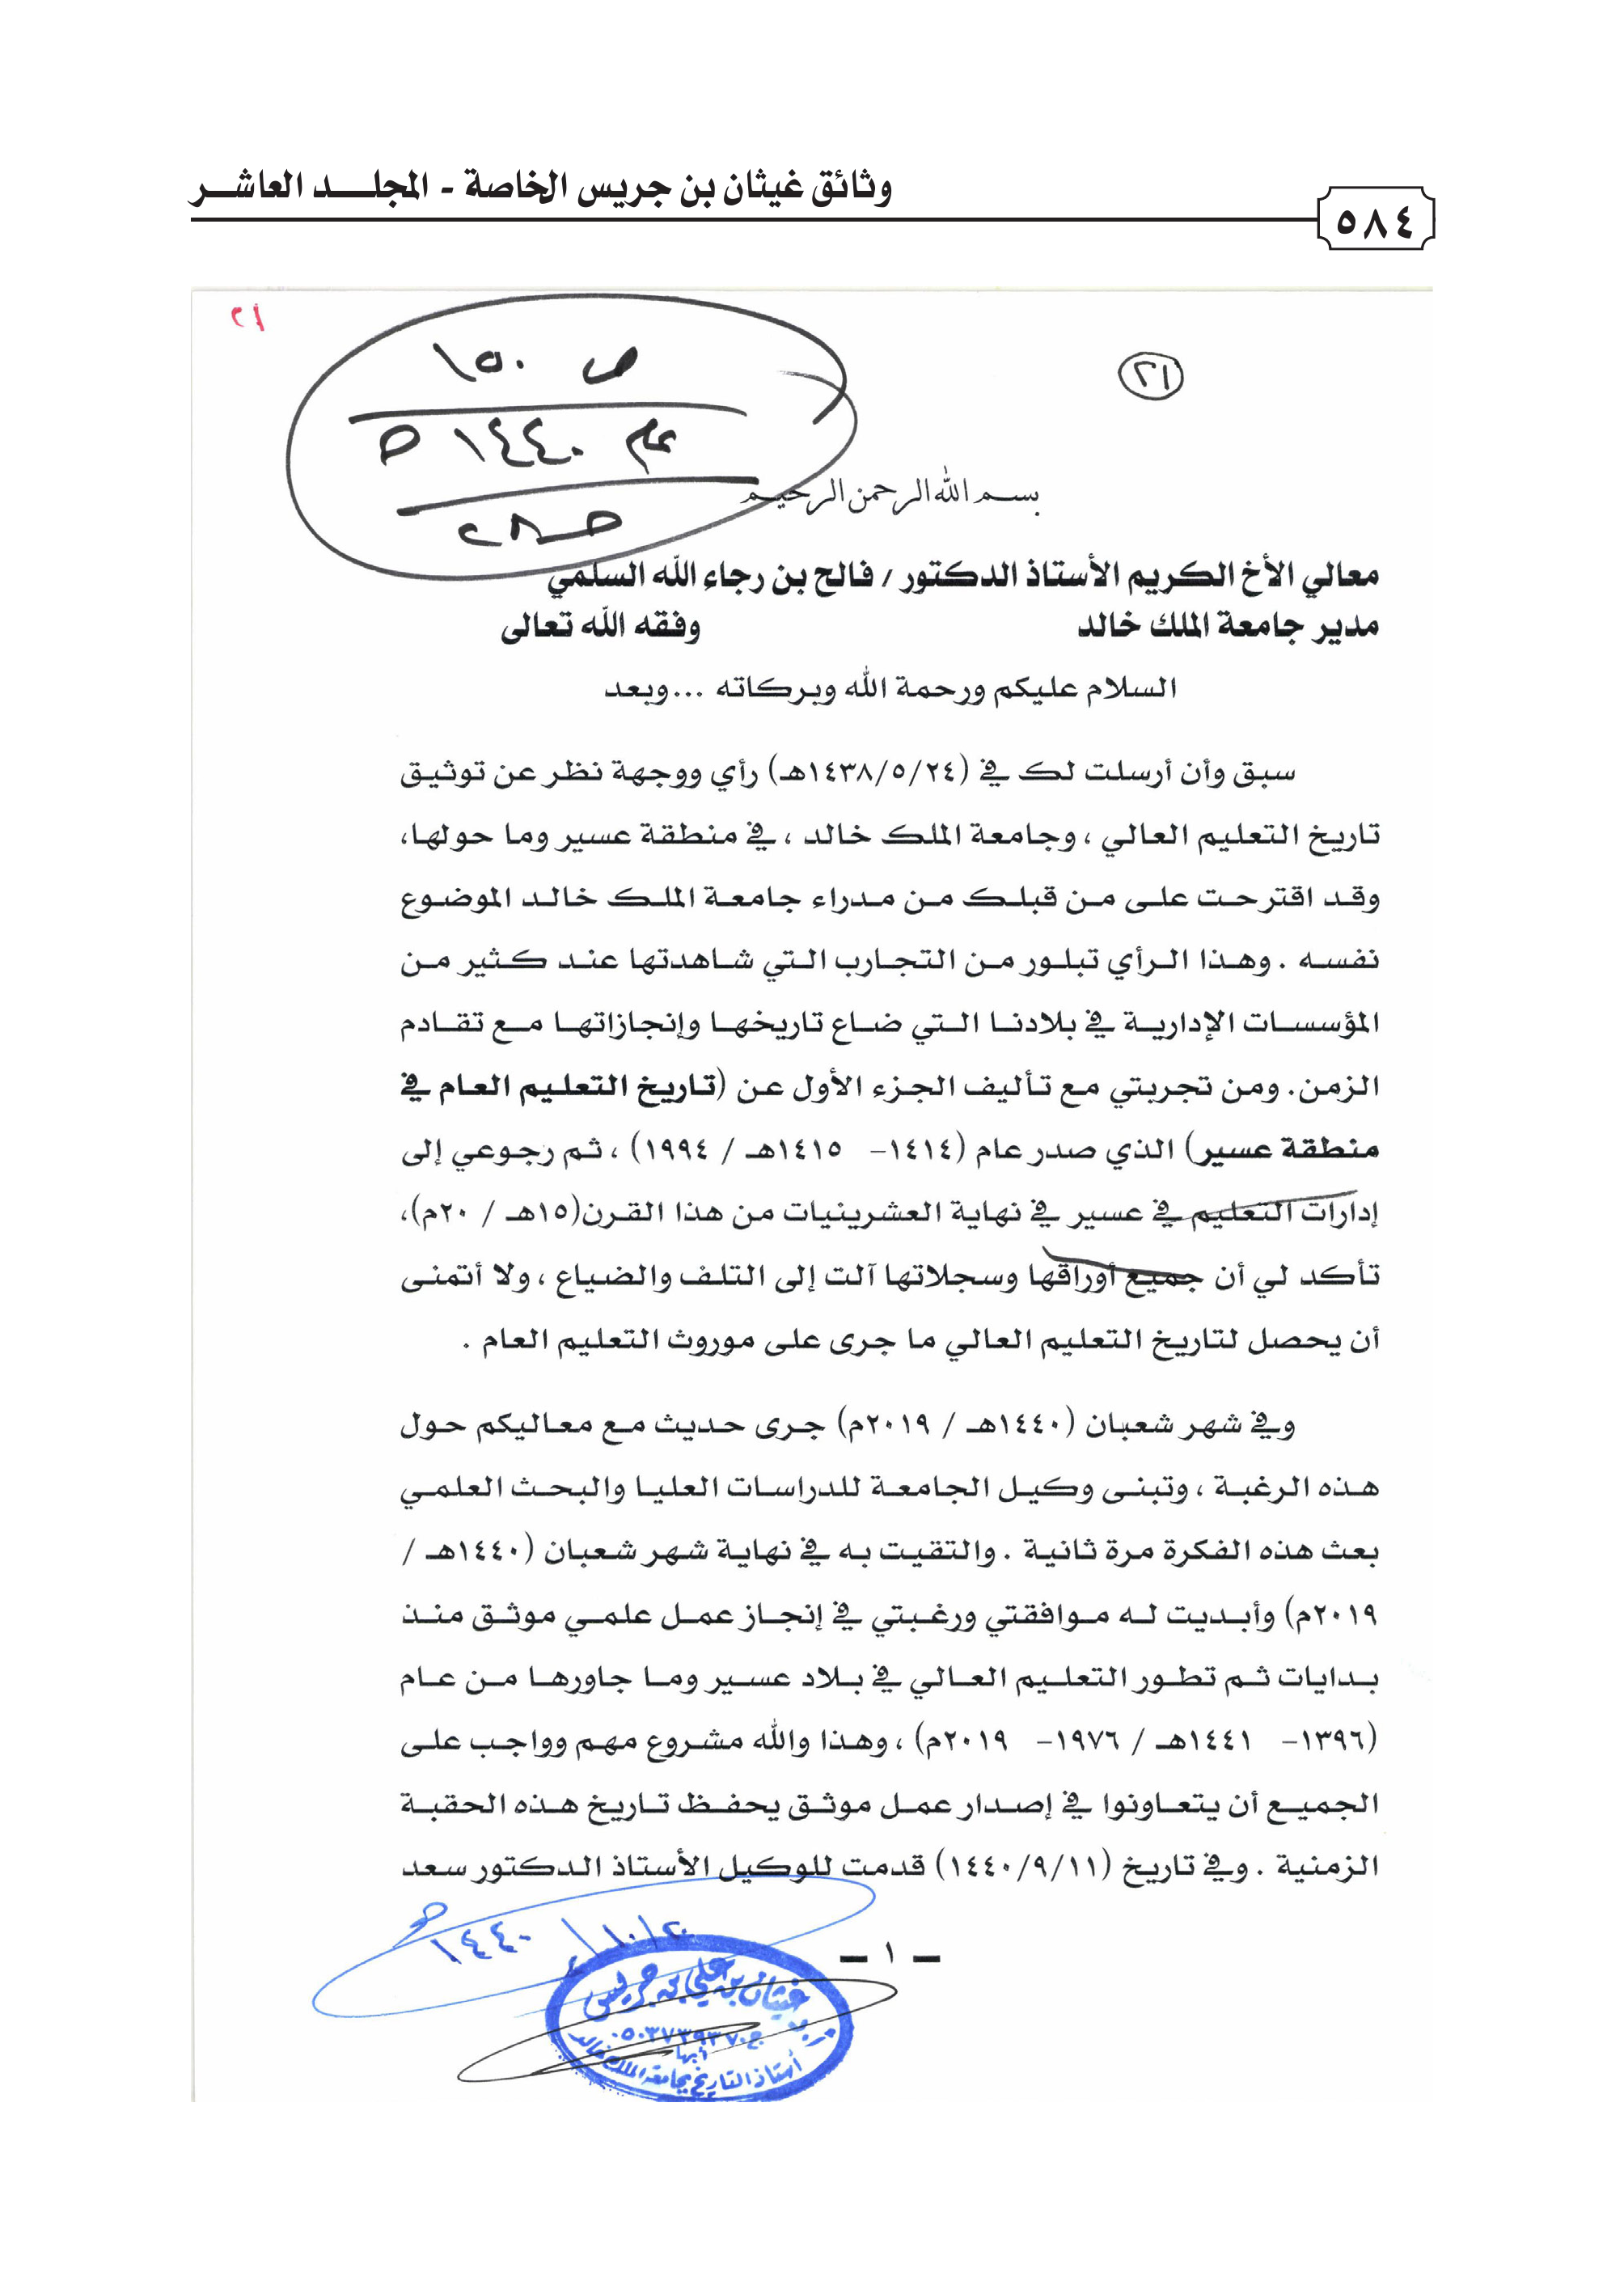 وثائق غيثان بن جريس الخاصة - المجلــد العاشــر
٥٨٤
٢١
٢١
ص ١٥٠
عام ١٤٤٠ هـ
بسم الله الرحمن الرحيم
معالي الأخ الكريم الأستاذ الدكتور / فالح بن رجاء الله السلمي
مدير جامعة الملك خالد وفقه الله تعالى
السلام عليكم ورحمة الله وبركاته ... وبعد
سبق وأن أرسلت لك في (١٤٣٨/٥/٢٤هـ) رأي ووجهة نظر عن توثيق
تاريخ التعليم العالي ، وجامعة الملك خالد ، في منطقة عسير وما حولها،
وقد اقترحت على من قبلك من مدراء جامعة الملك خالد الموضوع
نفسه . وهذا الرأي تبلور من التجارب التي شاهدتها عند كثير من
المؤسسات الإدارية في بلادنا التي ضاع تاريخها وإنجازاتها مع تقادم
الزمن. ومن تجربتي مع تأليف الجزء الأول عن (تاريخ التعليم العام في
منطقة عسير) الذي صدر عام (١٤١٤- ١٤١٥هـ / ١٩٩٤) ، ثم رجوعي إلى
إدارات التعليم في عسير في نهاية العشرينيات من هذا القرن(١٥هـ / ٢٠م)،
تأكد لي أن جميع أوراقها وسجلاتها آلت إلى التلف والضياع ، ولا أتمنى
أن يحصل لتاريخ التعليم العالي ما جرى على موروث التعليم العام .
وفي شهر شعبان (١٤٤٠هـ / ٢٠١٩م) جرى حديث مع معاليكم حول
هذه الرغبة ، وتبنى وكيل الجامعة للدراسات العليا والبحث العلمي
بعث هذه الفكرة مرة ثانية . والتقيت به في نهاية شهر شعبان (١٤٤٠هـ /
٢٠١٩م) وأبديت له موافقتي ورغبتي في إنجاز عمل علمي موثق منذ
بدايات ثم تطور التعليم العالي في بلاد عسير وما جاورها من عام
(١٣٩٦- ١٤٤١هـ / ١٩٧٦- ٢٠١٩م) ، وهذا والله مشروع مهم وواجب على
الجميع أن يتعاونوا في إصدار عمل موثق يحفظ تاريخ هذه الحقبة
الزمنية . وفي تاريخ (١٤٤٠/٩/١١) قدمت للوكيل الأستاذ الدكتور سعد
١٤٤٠/١٠/٢٠هـ
– ١ –
غيثان بن علي بن جريس
ج ٠٥٠٣٧٣٩٣٧٠
أبها
أستاذ التاريخ بجامعة الملك خالد